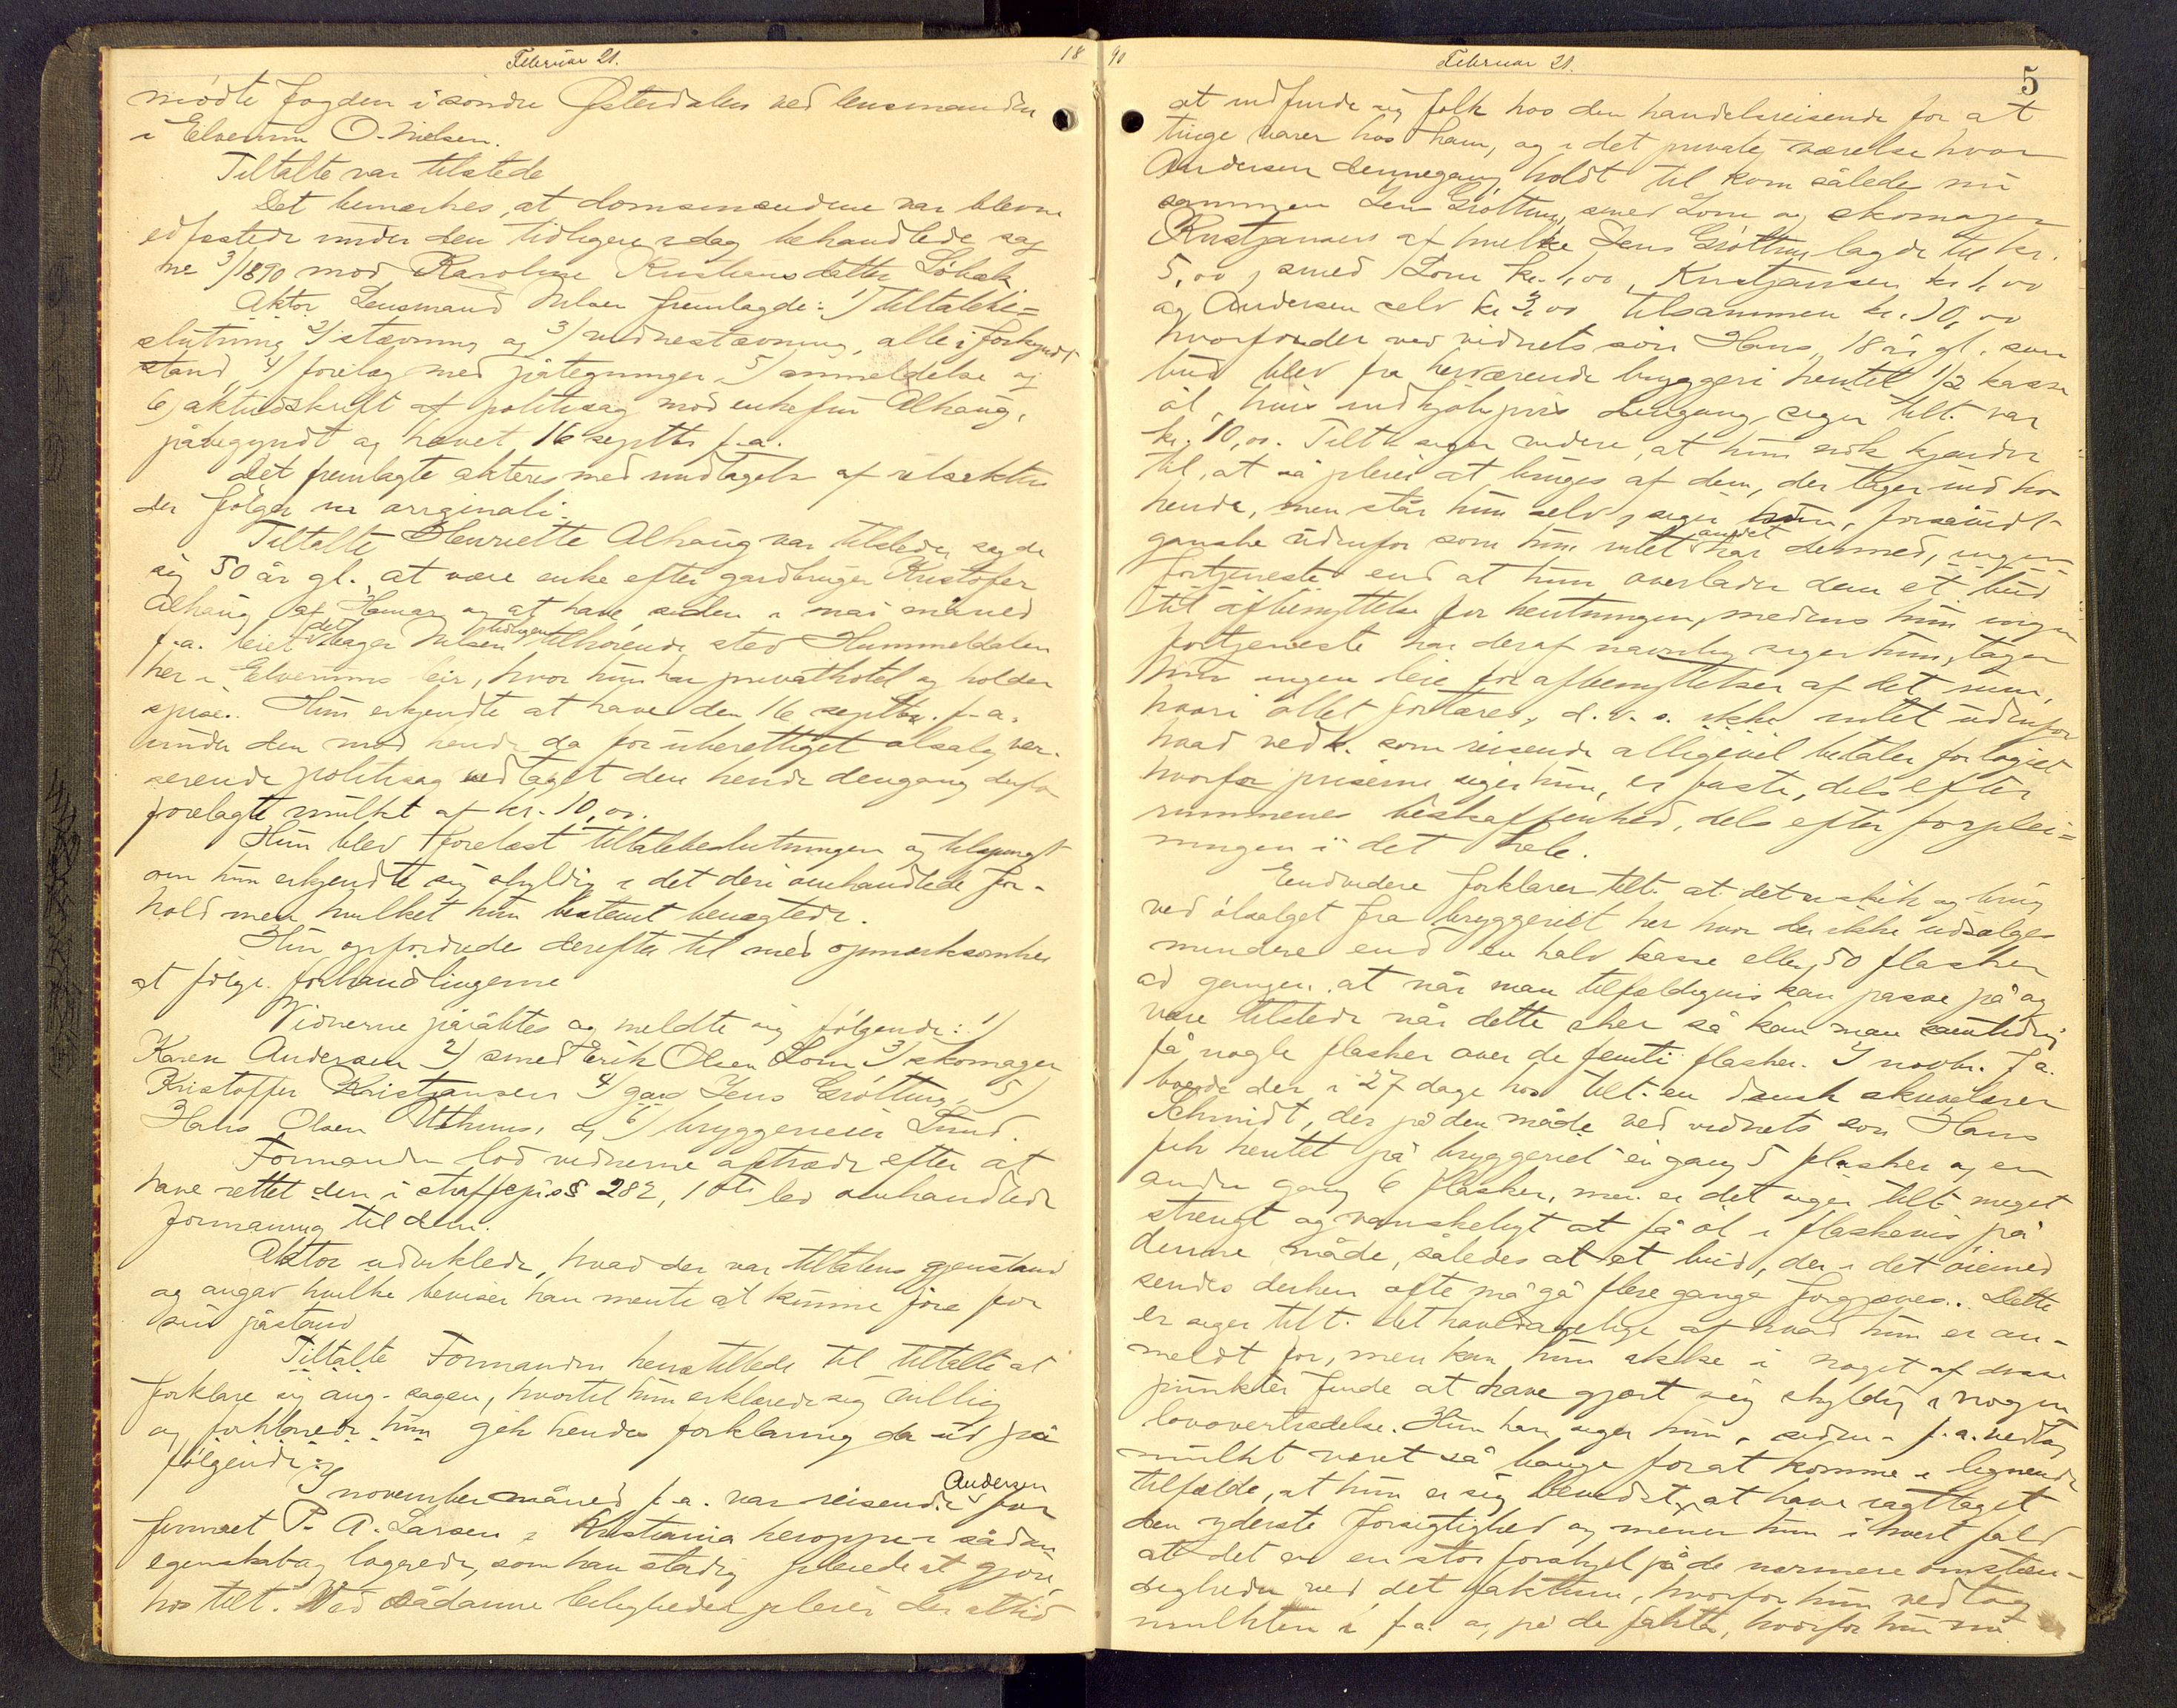 Februar 21.
18
mödte fogden i söndre Østerdalen ved lensmanden
i Elverum O. Nielsen.
Tiltalte var tilstede
Det bemærkes, at domsmændene var blevne
edfæstede under den tidligere idag behandlede sag
no 3/1890 mod Karoline Kristiansdatter Löbæk
Aktor Lensmand Nilsen fremlagde: 1) tiltalebe=
slutning 2) stævning og 3) vidnestævning, alle i forkyndt
stand, 4) forelæg med påtegninger, 5) anmeldelse og
6) aktudskrift af politisag mod enkefru Alhaug,
påbegyndt og hævet 16 septbr f.a.
det fremlagte akteres med undtagelse af
der fölger in originali.
Tiltalte Henriette Alhaug var tilstede, sagde
sig 50 år gl., at være enke efter gårdbruger Kristofer
Alhaug af Hamar og at have siden i mai måned
f.a. leiet det bager Nilsen tidligere tilhörende sted Hummeldalen
her i Elverums leir, hvor hun har privathotel og holder
spise. Hun erkjendte at have den 16 septbr. f.a.
under den mod hende da for uberettiget ölsalg ver-
serende politisag vedtaget den hende dengang derfor
forelagte mulkt af kr. 10,00.
Hun blev forelæst tiltalebeslutningen og tilspurgt
om hun erkjendte sig skyldig i det deri omhandlede for-
hold men hvilket hun bestemt benægtede.
Hun opfordrede derefter til med opmærksomhed
at fölge forhandlingerne
Vidnerne påråbtes og meldte sig fölgende: 1)
Karen Andersen 2) smed Erik Olsen Lom, 3) skomager
Kristoffer Kristjansen 4) gård Jens Gröttung, 5)
Hans Olsen Utthuus, og 6) bryggerieier Lund.
Formanden lod vidnerne aftræde efter at
have rettet den i straffeprs § 282, 1ste led omhandlede
formaning til dem.
Aktor udviklede, hvad der var tiltalens gjenstand
og angav hvilke beviser han mente at kunne före for
sin påstand
Tiltalte Formanden henstillede til tiltalte at
forklare sig ang. sagen, hvortil hun erklærede sig villig
og forklarede hun gik hendes forklaring da ud på
fölgende:
I november måned f.a. var reisende Andersen for
firmaet P. A. Larsen i Kristiania heroppe i sådan
egenskab og logerede, som han stadig pleiede at gjöre
hos tilt. Ved sådanne leiligheder pleier der altid
90
Februar 21.
5
at indfinde sig folk hos den handelsreisende for at
tinge varer hos ham, og i det private værelse hvor
Andersen dennegang holdt til kom således nu
sammen Jens Gröttung, smed Lom og skomager
Kristjansen af hvilke Jens Gröttung lagde til kr.
5,00, smed Lom kr. 1,00, Kristjansen kr 1,00
og Andersen selv kr 3,00 tilsammen kr. 10,00
hvorfonder ved vidnets sön Hans, 18 år gl. som
bud blev fra herværende bryggeri hentet 1/2 kasse
öl, hvis indkjöbspris dengang, siger tilt. var
kr. 10,00. Tilt. siger videre, at hun nok kjender
til, at så pleier at bruges af dem, der tager ind hos
hende, men står hun selv, siger hun, forsåvidt
ganske udenfor som hun intet andet har dermed, ingen
fortjeneste end at hun overlader dem et bud
til afbenyttelse for hentningen, medens hun ingen
fortjeneste har deraf navnlig siger hun, tager
hun ingen leie for afbenyttelsen af det rum,
hvori öllet fortæres, d.v.s. ikke intet udenfor
hvad vedk. som reisende alligevel betaler for logiet
hvorfor priserne siger hun, er faste, dels efter
rummenes beskaffenhed, dels efter forplei=
ningen i det hele.
Endvidere forklarer tilt. at det er skik og brug
ved ölsalget fra bryggeriet her hvor der ikke udsælges
mindre end en halv kasse eller 50 flasker
ad gangen, at når man tilfældigvis kan passe på og
være tilstede når dette sker så kan man samtidig
få nogle flasker over de femti flasker. I novbr. f.a.
boede der i 27 dage hos tilt. en dansk
Schmidt, der på den måde ved vidnets sön Hans
fik hentet på bryggeriet en gang 5 flasker og en
anden gang 6 flasker, men er det siger tilt. meget
strengt og vanskeligt at få öl i flaskevis på
denne måde, således at et bud, der i det öiemed
sendes derhen ofte må gå flere gange forgjæves. Dette
er siger tilt. det hovedsagelige af hvad hun er an-
meldt for, men kan hun ikke i noget af disse
punkter finde at have gjort sig skyldig i nogen
lovovertrædelse. Hun har siger hun, siden i f.a. vedtag
mulkt været så bange for at komme i lignende
tilfælde, at hun er sig bevidst, at have iagttaget
den yderste forsigtighed og mener hun i hvert fald
at det er en stor forskjel på de nærmere omstæn-
digheder ved det faktum, hvorfor hun vedtog
mulkten i f.a. og på de fakta, hvorfor hun nu er